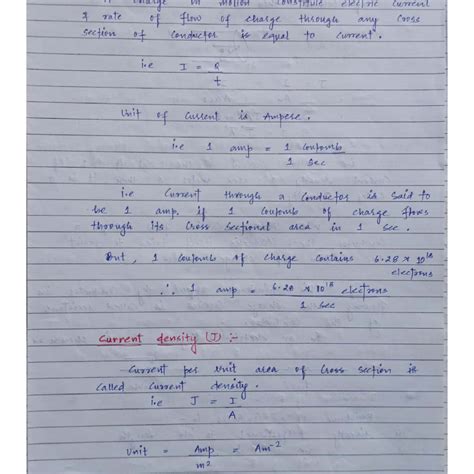 charge in motion constitute electric current
& rate of flow of charge through any cross
section of conductor is equal to current.
i.e I = Q
t
Unit of Current is Ampere.
i.e 1 amp = 1 Coulomb
1 Sec
i.e Current through a Conductor is Said to
be 1 amp, if 1 Coulomb of charge flows
through its Cross Sectional area in 1 Sec.
But, 1 Coulomb of charge Contains 6.28 × 10¹⁸
electrons
∴ 1 amp = 6.28 × 10¹⁸ electrons
1 Sec
Current density (J) :-
Current per Unit area of Cross Section is
Called Current density.
i.e J = I
A
Unit = Amp = Am⁻²
m²